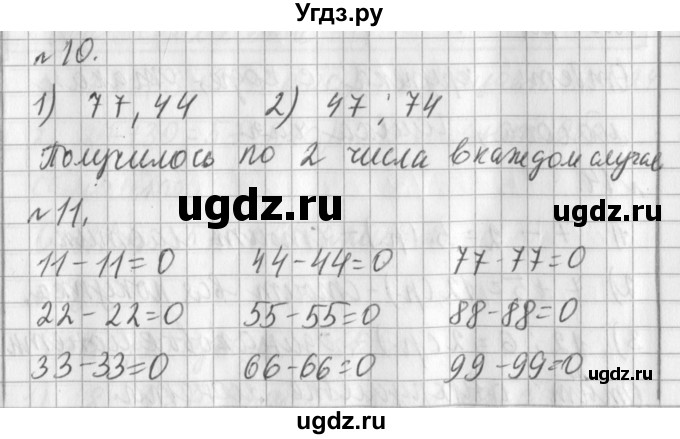 Угдз.ру
№ 10.
1) 77, 44 2) 47; 74
Получилось по 2 числа в каждом случае
№ 11.
ugdz.ru
ugdz.ru
11 - 11 = 0 44 - 44 = 0 77 - 77 = 0
22 - 22 = 0 55 - 55 = 0 88 - 88 = 0
33 - 33 = 0 66 - 66 = 0 99 - 99 = 0
ugdz.ru
ugdz.ru